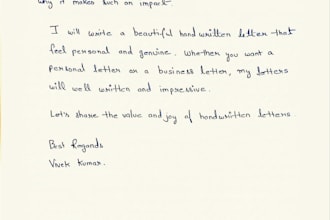 why it makes such an impact.
I will write a beautiful handwritten letter that
feel personal and genuine. Whether you want a
personal letter or a business letter, my letters
will well written and impressive.
Let's share the value and joy of handwritten letters.
Best Regards
Vivek Kumar.